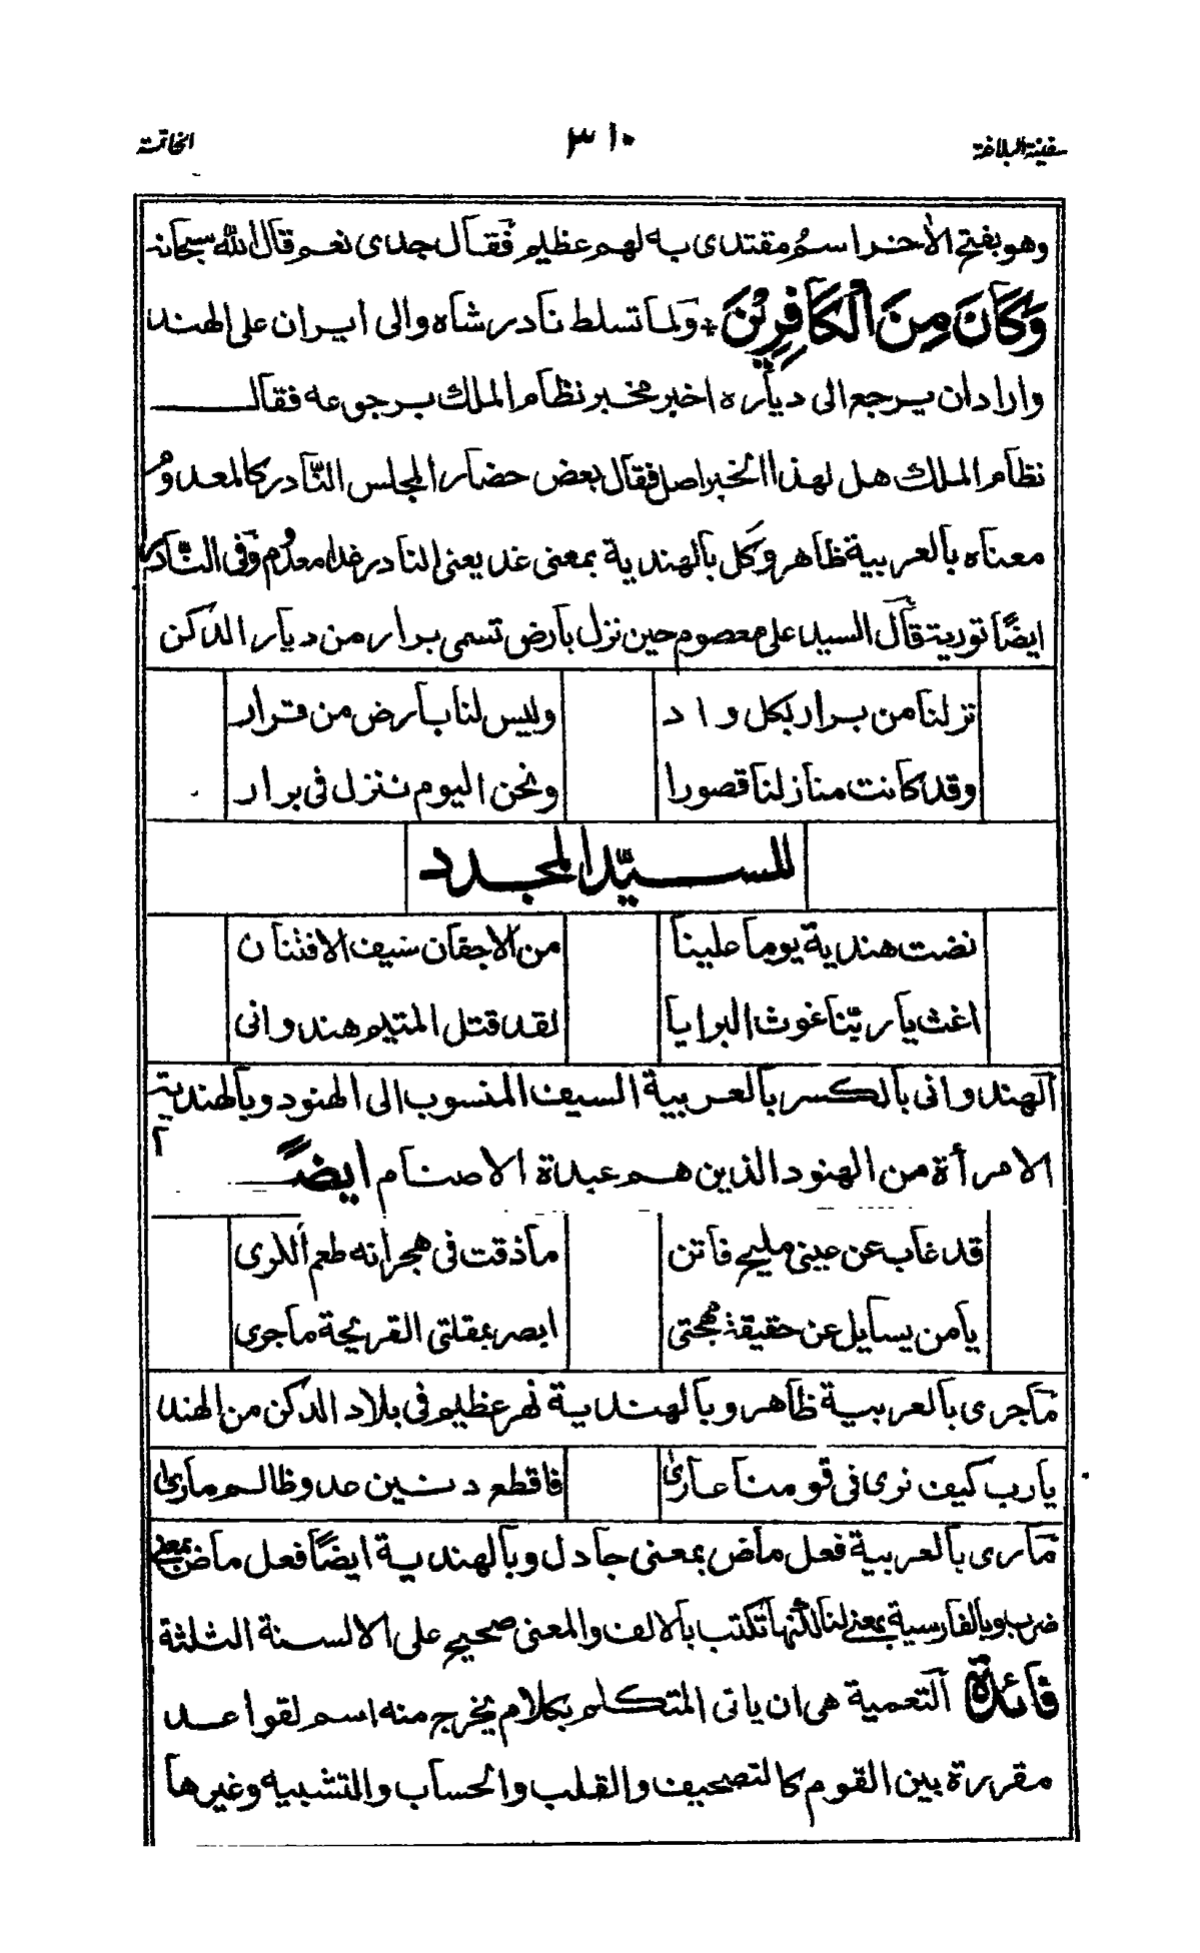 سفينة البلاغة ٣١٠ الخاتمة
وهو بفتح الأخر اسمُ مقتدى به لهم عظيم فقال جدى نعم قال الله سبحانه
وَكَانَ مِنَ الْكَافِرِيْنَ + ولما تسلط نادر شاه والى ايران على الهند
وارادان يرجع الى دياره اخبر مخبر نظام الملك برجوعه فقال
نظام الملك هل لهذا الخبر اصل فقال بعض حضار المجلس النّادر كالمعدومُ
معناه بالعربية ظاهر وكل بالهندية بمعنى غد يعنى النادر غدا معدوم وفى النّادر
ايضًا تورية قال السيد على معصوم حين نزل بارض تسمى برار من ديار الدكن
نزلنا من برار بكل واد وليس لنا بارض من قرار
وقد كانت منازلنا قصورا ونحن اليوم ننزل فى برار
للسيّد المجدد
نضت هندية يوما علينا من الاجفان سيف الافتنان
اغث يا ربّنا غوث البرايا لقد قتل المتيم هندوانى
الهندوانى بالكسر بالعربية السيف المنسوب الى الهنود وبالهندية
الامرأة من الهنود الذين هم عبدة الاصنام ايضًا
قد غاب عن عينى مليح فاتن ماذقت فى هجرانه طعم الكرى
يامن يسايل عن حقيقة مهجتى ابصر بمقلتى القريحة ماجرى
ماجرى بالعربية ظاهر وبالهندية نهر عظيم فى بلاد الدكن من الهند
يارب كيف نرى فى قومنا عارىٰ فاقطع وتين عدو ظالم مارىٰ
مارى بالعربية فعل ماض بمعنى جادل وبالهندية ايضًا فعل ماض بمعنى
ضرب وبالفارسية بمعنى لنا لكنها تكتب بالالف والمعنى صحيح على الالسنة الثلثة
فائدة التعمية هى ان ياتى المتكلم بكلام يخرج منه اسم لقواعد
مقررة بين القوم كالتصحيف والقلب والحساب والتشبيه وغيرها